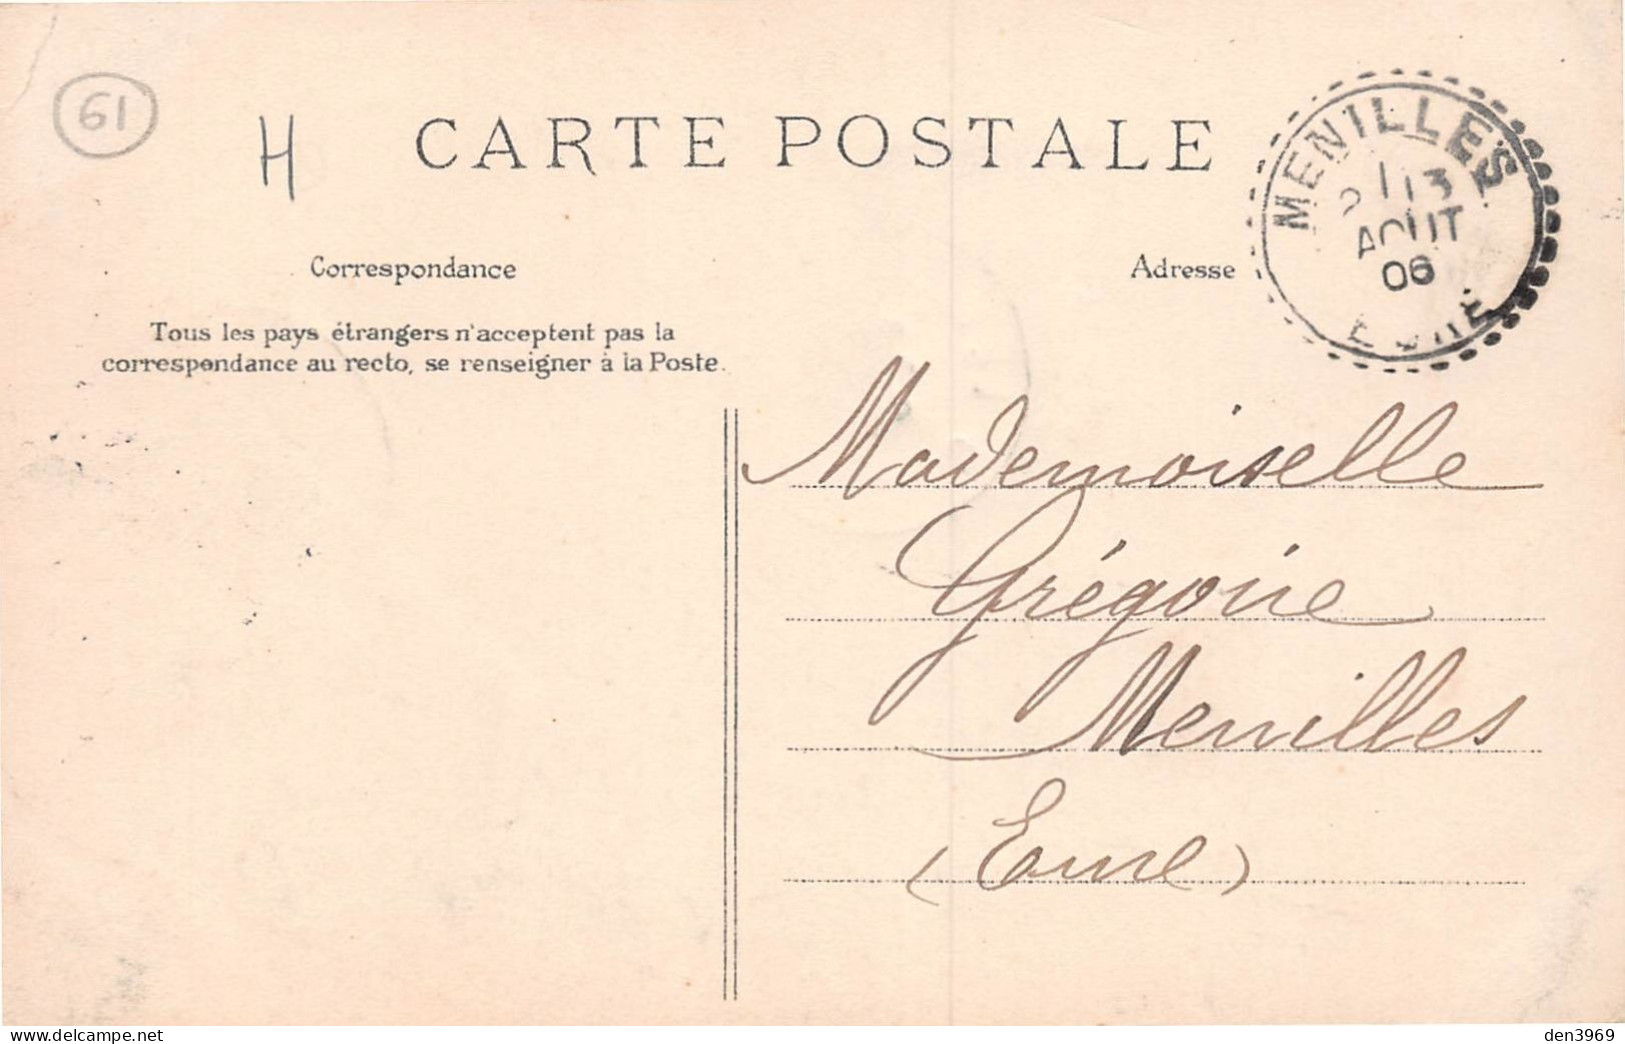 61
H
CARTE POSTALE
MENILLES
13
AOUT
06
EURE
Correspondance
Adresse
Tous les pays étrangers n'acceptent pas la
correspondance au recto, se renseigner à la Poste.
Mademoiselle
Grégoire
Menilles
(Eure)
den3969